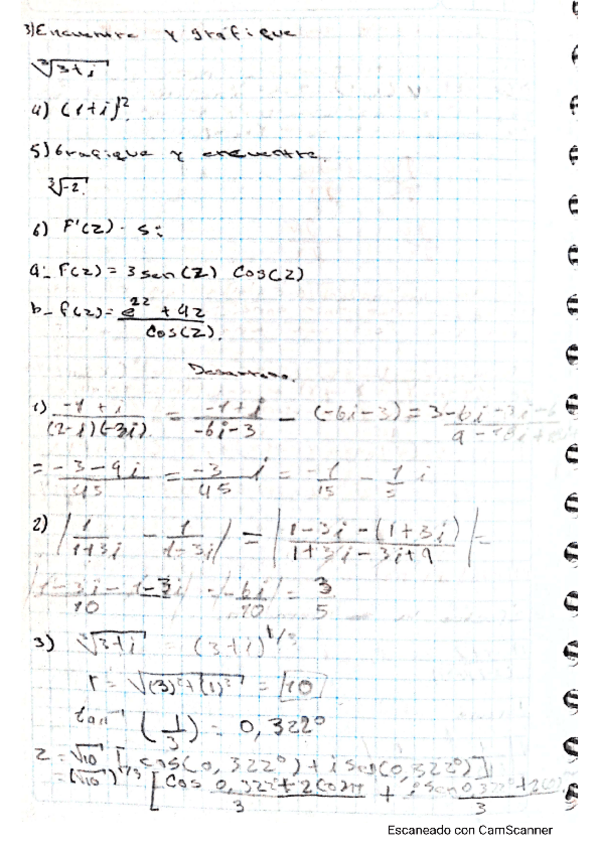 3) Encuentre y grafique
∛(3+i)
4) (1+i)²
5) Grafique y encuentre
∛-2
6) F'(z) . s:
a- F(z) = 3 sen(z) cos(z)
b- f(z) = (e^2z + 4z)/cos(z).
Desarrollo.
1) (-1+i)/((2-i)(-3i)) = (-1+i)/(-6i-3) - (-6i-3) = 3-6i-3i-6
= (-3-9i)/45 = -3/45 i = -1/15 - 1/5 i
2) |1/(1+3i) - 1/(1-3i)| = |(1-3i-(1+3i))/(1+3i-3i+9)| =
|(1-3i-1-3i)/10| = |-6i/10| = 3/5
3) ∛(3+i) = (3+i)^1/3
r = √((3)²+(1)²) = √10
tan⁻¹ (1/3) = 0,322°
z = √10 [cos(0,322°) + i sen(0,322°)]
= (√10)^1/3 [cos (0,322+2(0)π)/3 + i sen (0,322°+2(0)